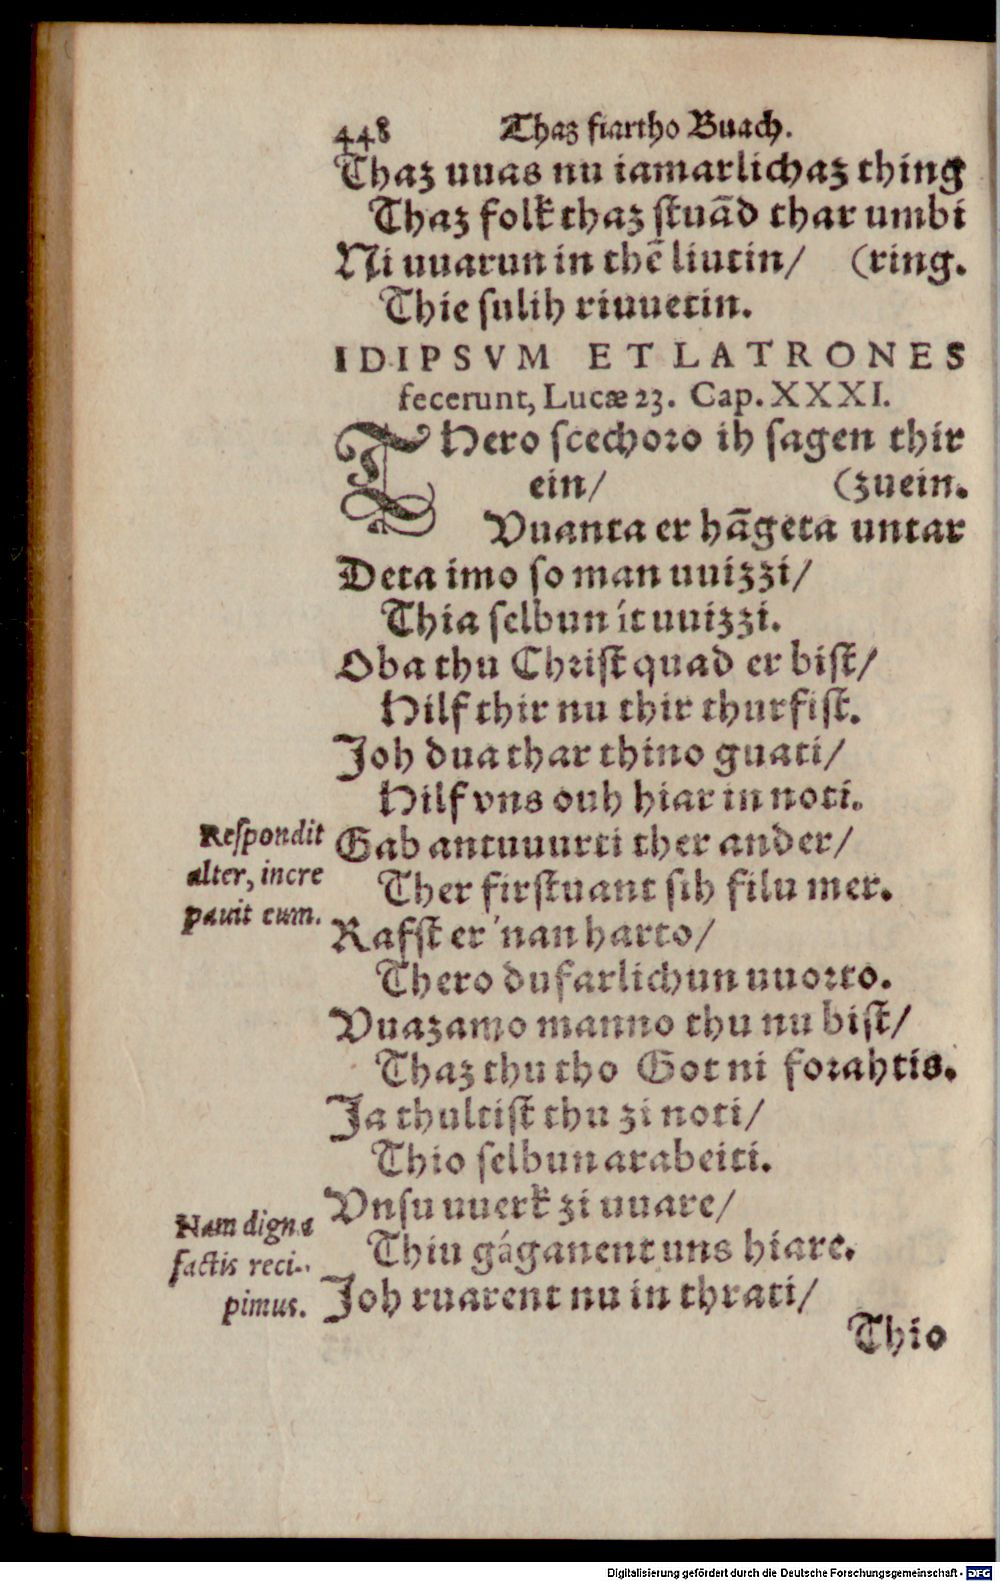 448 Thaz fiartho Buach.
Thaz uuas nu iamarlichaz thing
Thaz folk thaz stuãd thar umbi
Ni uuarun in thẽ liutin/ (ring.
Thie sulih riuuetin.
IDIPSVM ET LATRONES
fecerunt, Lucæ 23. Cap. XXXI.
THero scechoro ih sagen thir
ein/ (zuein.
Vuanta er hãgeta untar
Deta imo so man uuizzi/
Thia selbun ít uuizzi.
Oba thu Christ quad er bist/
Hilf thir nu thir thurfist.
Joh dua thar thino guati/
Hilf vns ouh hiar in noti.
Respondit
alter, incre
pauit eum.
Gab antuuurti ther ander/
Ther firstuant sih filu mer.
Rafst er 'nan harto/
Thero dufarlichun uuorto.
Vuazamo manno thu nu bist/
Thaz thu tho Got ni forahtis.
Ja thultist thu zi noti/
Thio selbun arabeiti.
Nam digna
factis reci-
pimus.
Vnsu uuerk zi uuare/
Thiu gáganent uns hiare.
Joh ruarent nu in thrati/
Thio
Digitalisierung gefördert durch die Deutsche Forschungsgemeinschaft - DFG